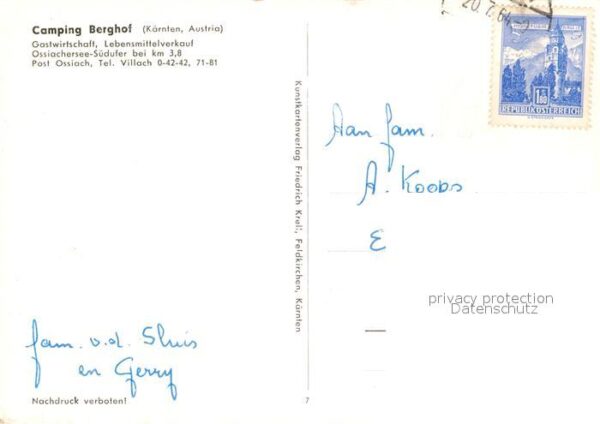 Camping Berghof (Kärnten, Austria)
Gastwirtschaft, Lebensmittelverkauf
Ossiachersee-Südufer bei km 3,8
Post Ossiach, Tel. Villach 0-42-42, 71-81
20.7.64
1.80
REPUBLIK ÖSTERREICH
Kunstkartenverlag Friedrich Kreli, Feldkirchen, Kärnten
Aan fam.
A. Koobs
E
privacy protection
Datenschutz
fam. v.d. Sluis
en Gerry
Nachdruck verboten!
7